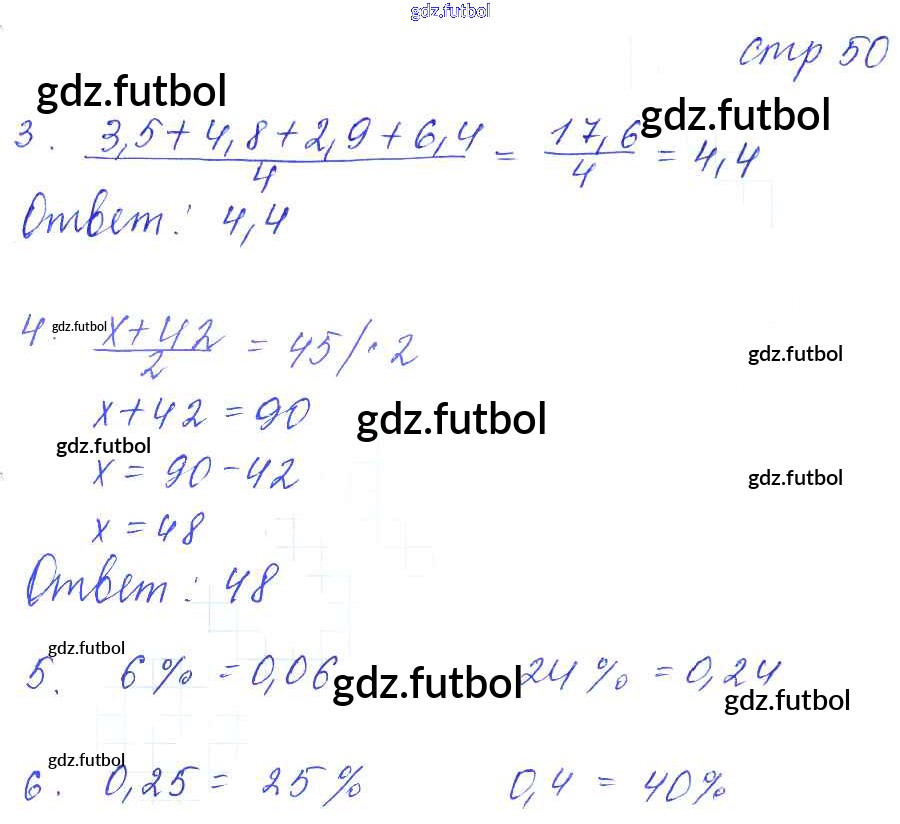 gdz.futbol
стр 50
gdz.futbol
gdz.futbol
3. (3,5+4,8+2,9+6,4)/4 = 17,6/4 = 4,4
Ответ: 4,4
4. gdz.futbol (x+42)/2 = 45 /·2
gdz.futbol
x+42 = 90
gdz.futbol
gdz.futbol
x = 90-42
gdz.futbol
x = 48
Ответ: 48
gdz.futbol
5. 6% = 0,06 24% = 0,24
gdz.futbol
gdz.futbol
gdz.futbol
6. 0,25 = 25% 0,4 = 40%